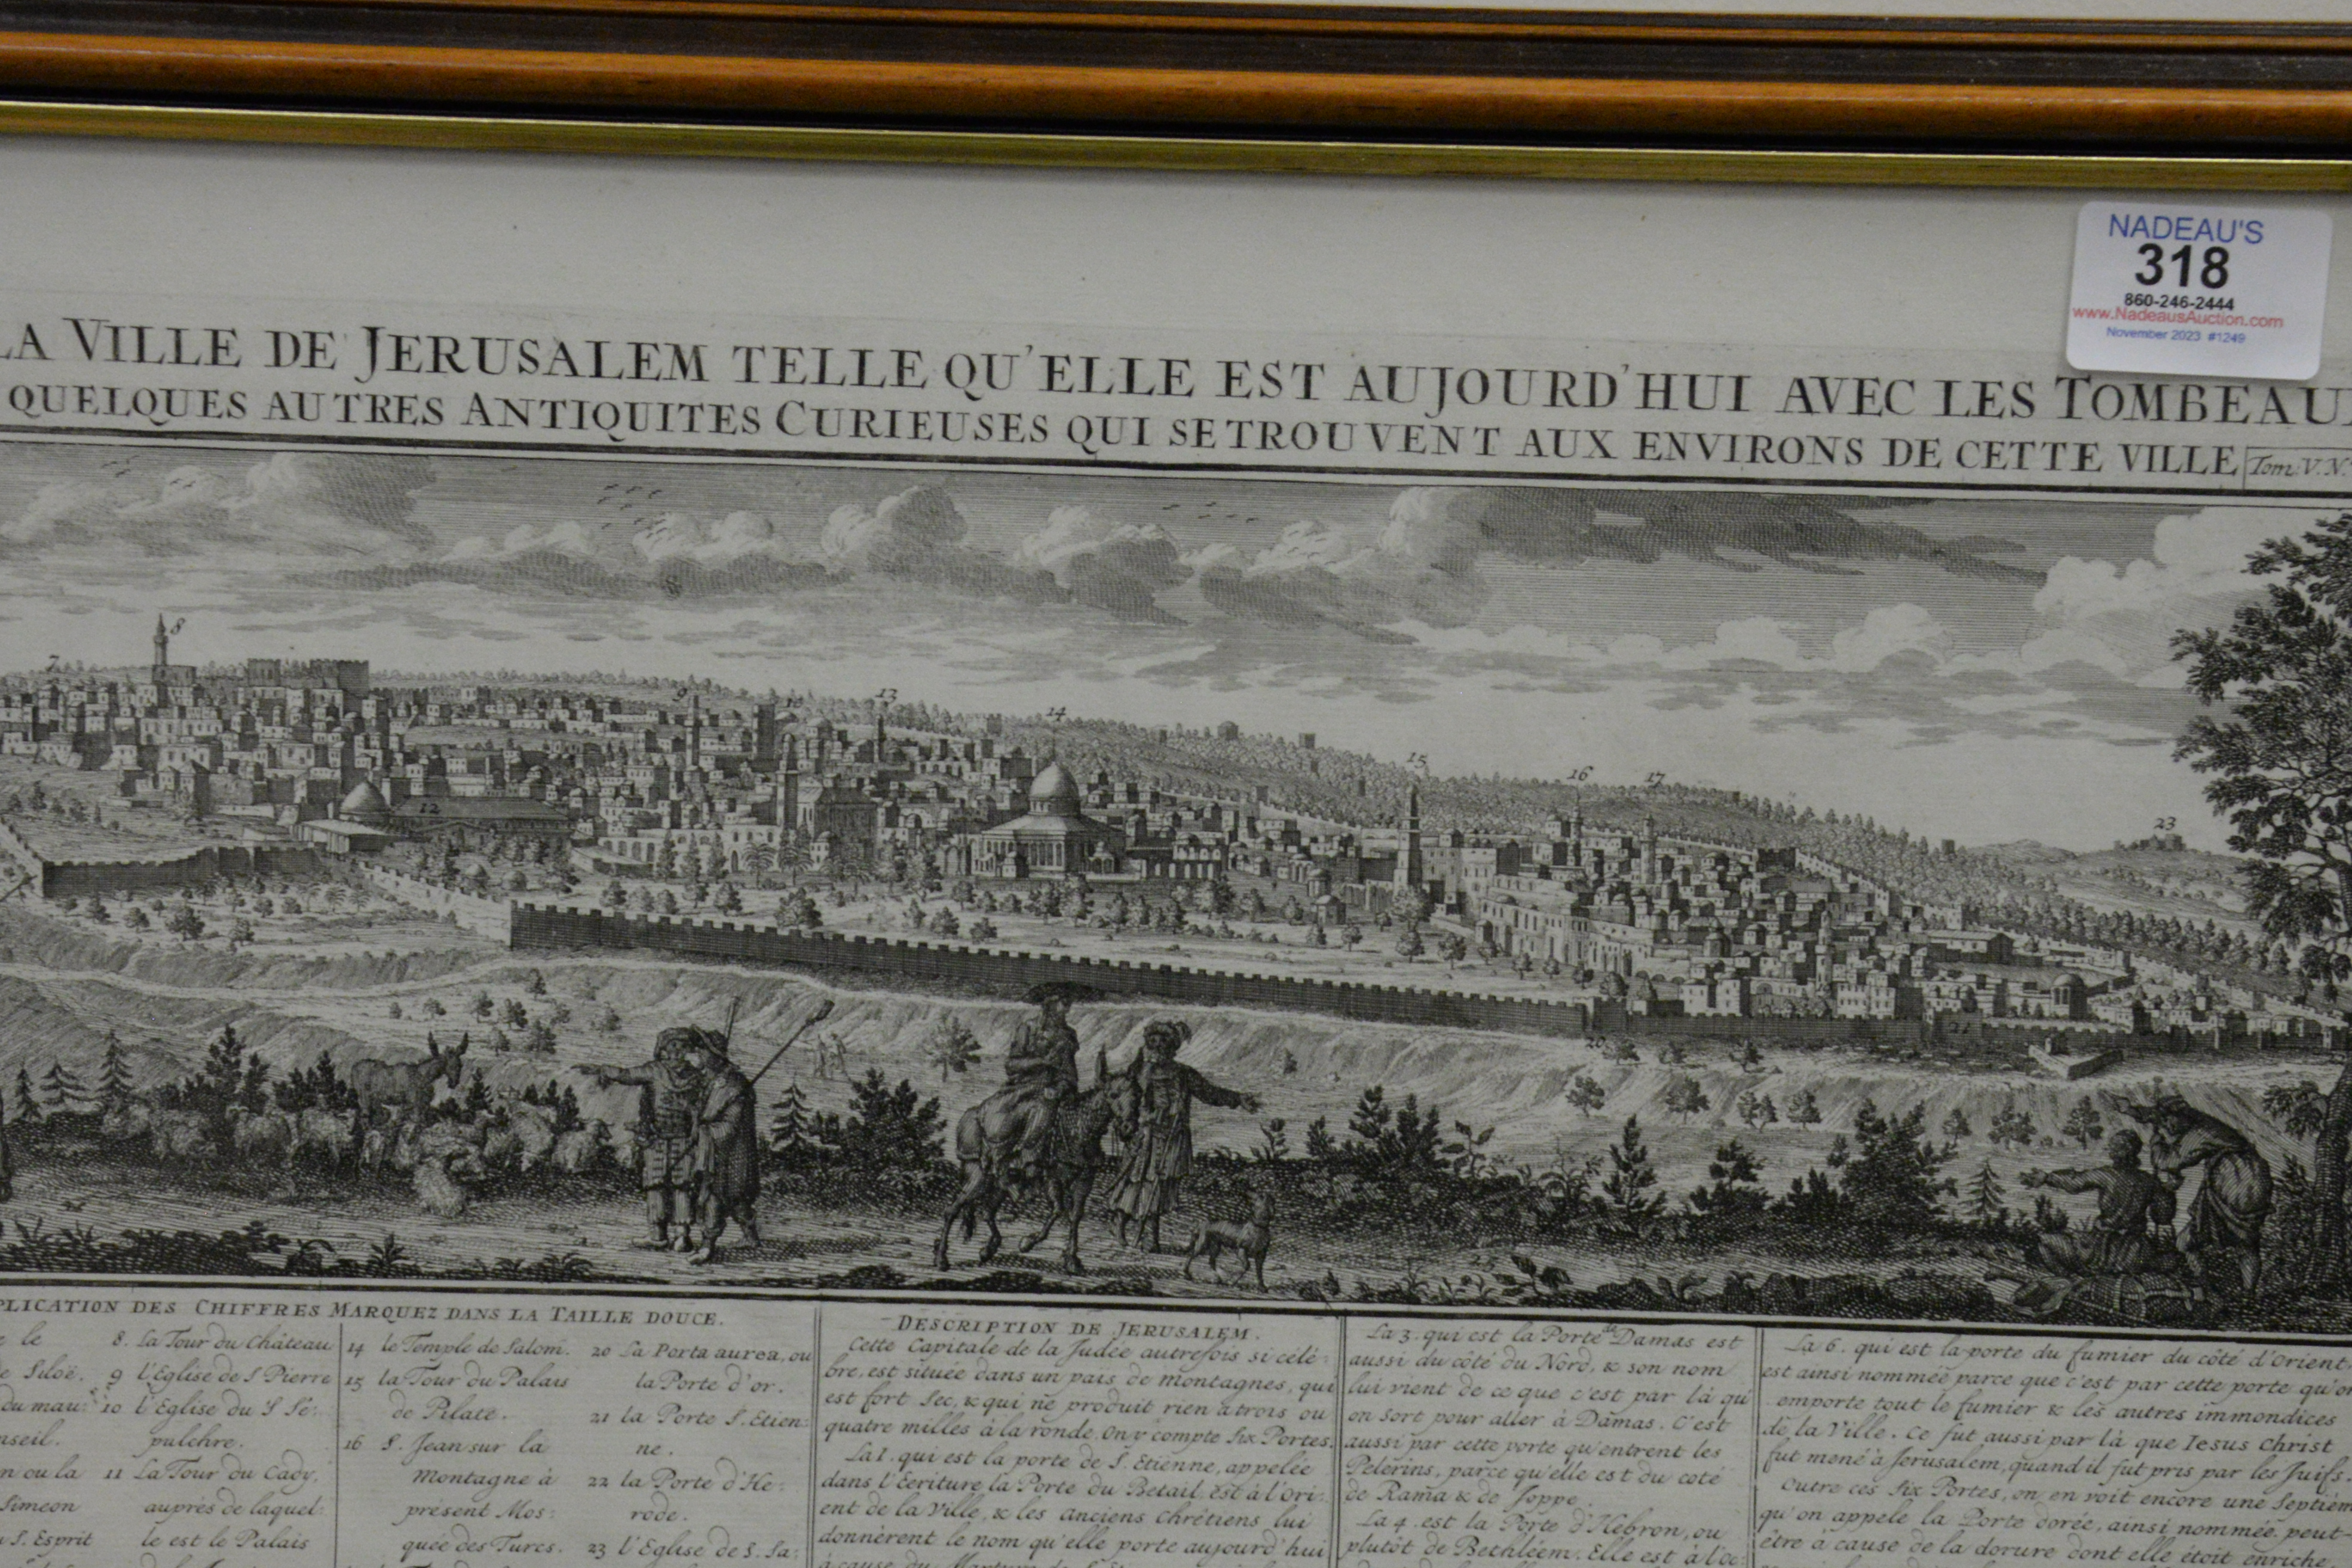 NADEAU'S
318
860-246-2444
www.NadeausAuction.com
November 2023 #1249
LA VILLE DE JERUSALEM TELLE QU'ELLE EST AUJOURD'HUI AVEC LES TOMBEAU
QUELQUES AUTRES ANTIQUITES CURIEUSES QUI SE TROUVENT AUX ENVIRONS DE CETTE VILLE
Tom. V. N.
7
8
9
10
13
14
12
15
16
17
23
20
21
PLICATION DES CHIFFRES MARQUEZ DANS LA TAILLE DOUCE.
le
de Siloë.
du mau
nseil.
n ou la
Simeon
S. Esprit
8. La Tour du Château
9 l'Eglise de S Pierre
10 l'Eglise du S Sé-
pulchre.
11 La Tour du Cady,
auprés de laquel-
le est le Palais
14 le Temple de Salom.
15 la Tour du Palais
de Pilate.
16 S. Jean sur la
Montagne à
présent Mos-
quée des Turcs.
20 La Porta aurea, ou
la Porte d'or.
21 la Porte S. Etien-
ne.
22 la Porte d'He-
rode.
23 l'Eglise de S. Sa-
DESCRIPTION DE JERUSALEM.
Cette Capitale de la Judée autrefois si célé-
bre, est située dans un païs de montagnes, qui
est fort Sec, & qui ne produit rien a trois ou
quatre milles à la ronde. On y compte Six Portes.
La 1. qui est la porte de S. Etienne, appelée
dans l'Ecriture, la Porte du Betail. Est à l'Ori-
ent de la Ville, & les Anciens Chrétiens lui
donnèrent le nom qu'elle porte aujourd'hui
à cause du
La 3. qui est la Porte de Damas est
aussi du côté du Nord, & son nom
lui vient de ce que c'est par là qu'
on sort pour aller à Damas. C'est
aussi par cette porte qu'entrent les
Pelerins, parce qu'elle est du coté
de Rama & de Joppe.
La 4. est la Porte d'Hebron, ou
plutôt de Bethléem. Elle est à l'Oc-
La 6. qui est la porte du fumier du côté d'Orient,
est ainsi nommée parce que c'est par cette porte qu'on
emporte tout le fumier & les autres immondices
de la Ville. Ce fut aussi par là que Jesus Christ
fut mené à Jerusalem, quand il fut pris par les Juifs
Outre ces Six Portes, on en voit encore une Septiém
qu'on appele la Porte dorée, ainsi nommée peut-
être à cause de la dorure dont elle étoit enrichie